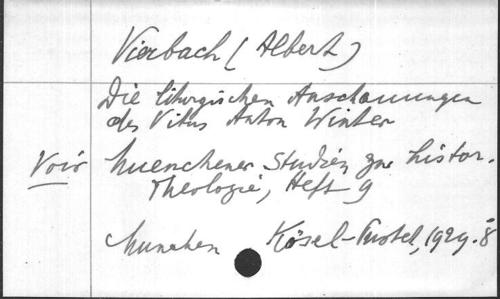 Vierbach (Albert)
Die liturgischen Anschauungen
des Vitus Anton Winter
Voir Muenchener Studien zur histor.
Theologie, Heft 9
München Kösel-Pustet, 1929. 8°